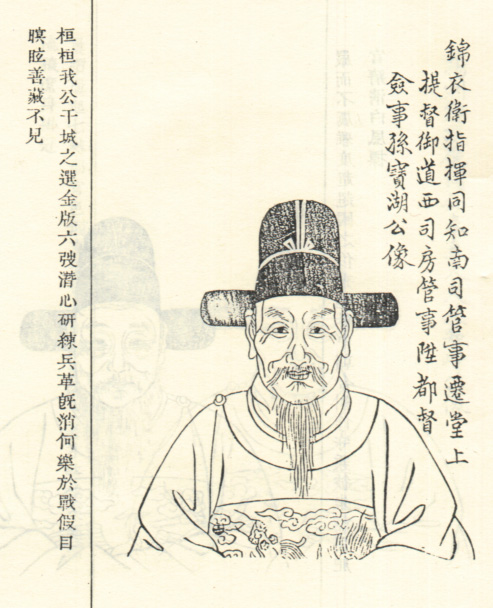 錦衣衛指揮同知南司管事遷堂上
提督御道西司房管事陞都督
僉事孫寶湖公像
桓桓我公干城之選金版六弢潛心研練兵革旣消何樂於戰假目
瞑眩善藏不見